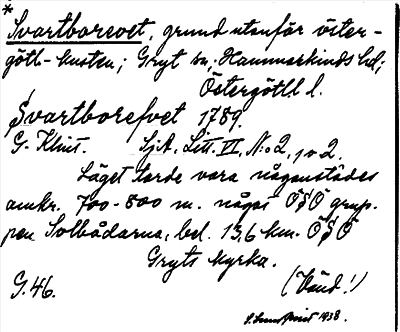 *
Svartborevet, grund utanför öster-
götl-kusten; Gryt sn; Hammarkinds hd;
Östergötll l.
Svartborefvet 1789.
G. Klint. Sjk. Litt. VI, N:o 2, 1 o 2.
Läget torde vara någonstädes
omkr. 700-800 m. något ÖSÖ grup-
pen Solbådarna, bel. 13,6 km. ÖSÖ
Gryts kyrka.
G. 46. (Vänd!)
1938.